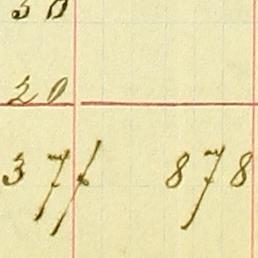 30
20
377 878